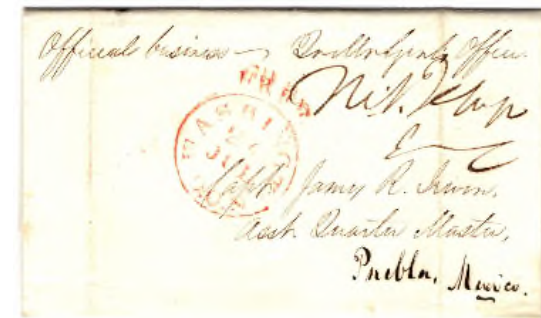 Official business — Office
FREE
WASHIN
JUL
Capt. James R. Irwin,
Asst. Quarter Master,
Puebla, Mexico.